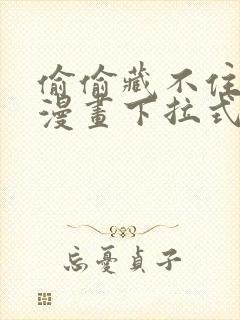 偷偷藏不住
漫畫下拉式
忘憂貞子